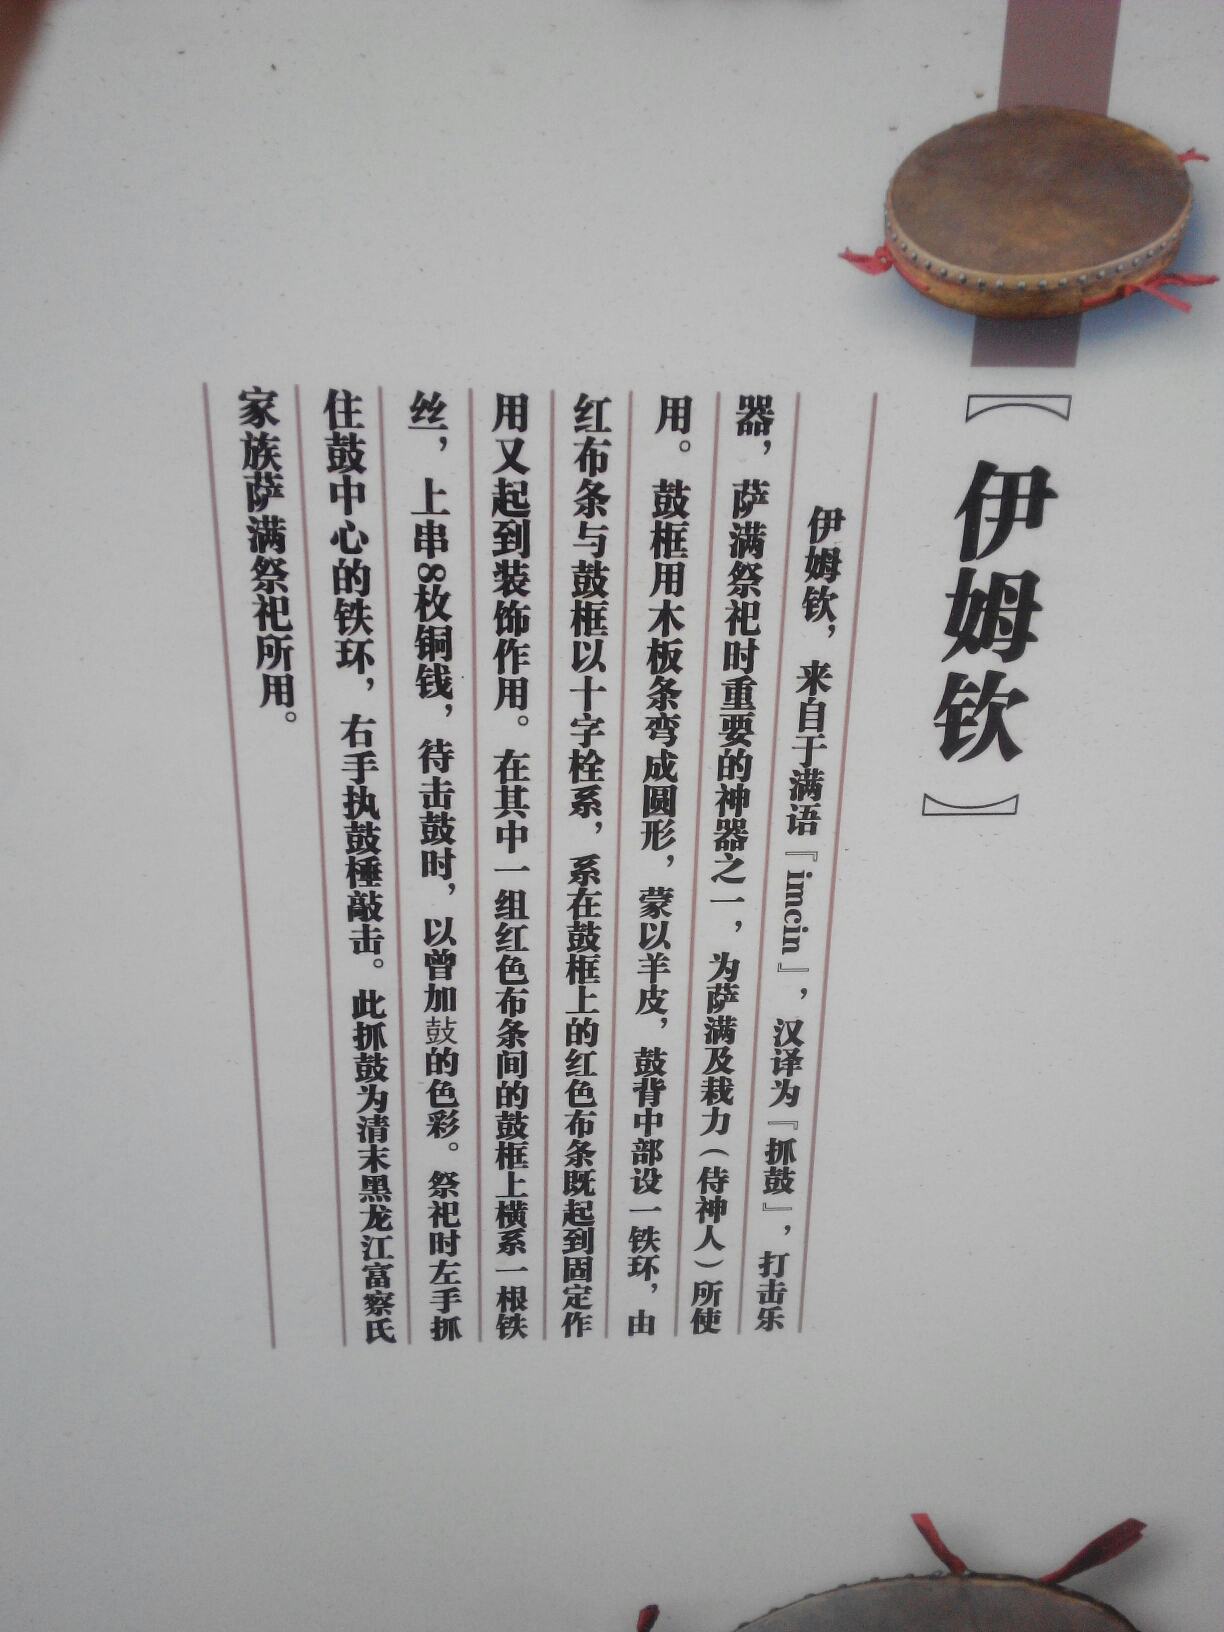 【伊姆钦】
伊姆钦，来自于满语『imcin』，汉译为『抓鼓』，打击乐
器，萨满祭祀时重要的神器之一，为萨满及栽力（侍神人）所使
用。鼓框用木板条弯成圆形，蒙以羊皮，鼓背中部设一铁环，由
红布条与鼓框以十字栓系，系在鼓框上的红色布条既起到固定作
用又起到装饰作用。在其中一组红色布条间的鼓框上横系一根铁
丝，上串8枚铜钱，待击鼓时，以曾加鼓的色彩。祭祀时左手抓
住鼓中心的铁环，右手执鼓棰敲击。此抓鼓为清末黑龙江富察氏
家族萨满祭祀所用。